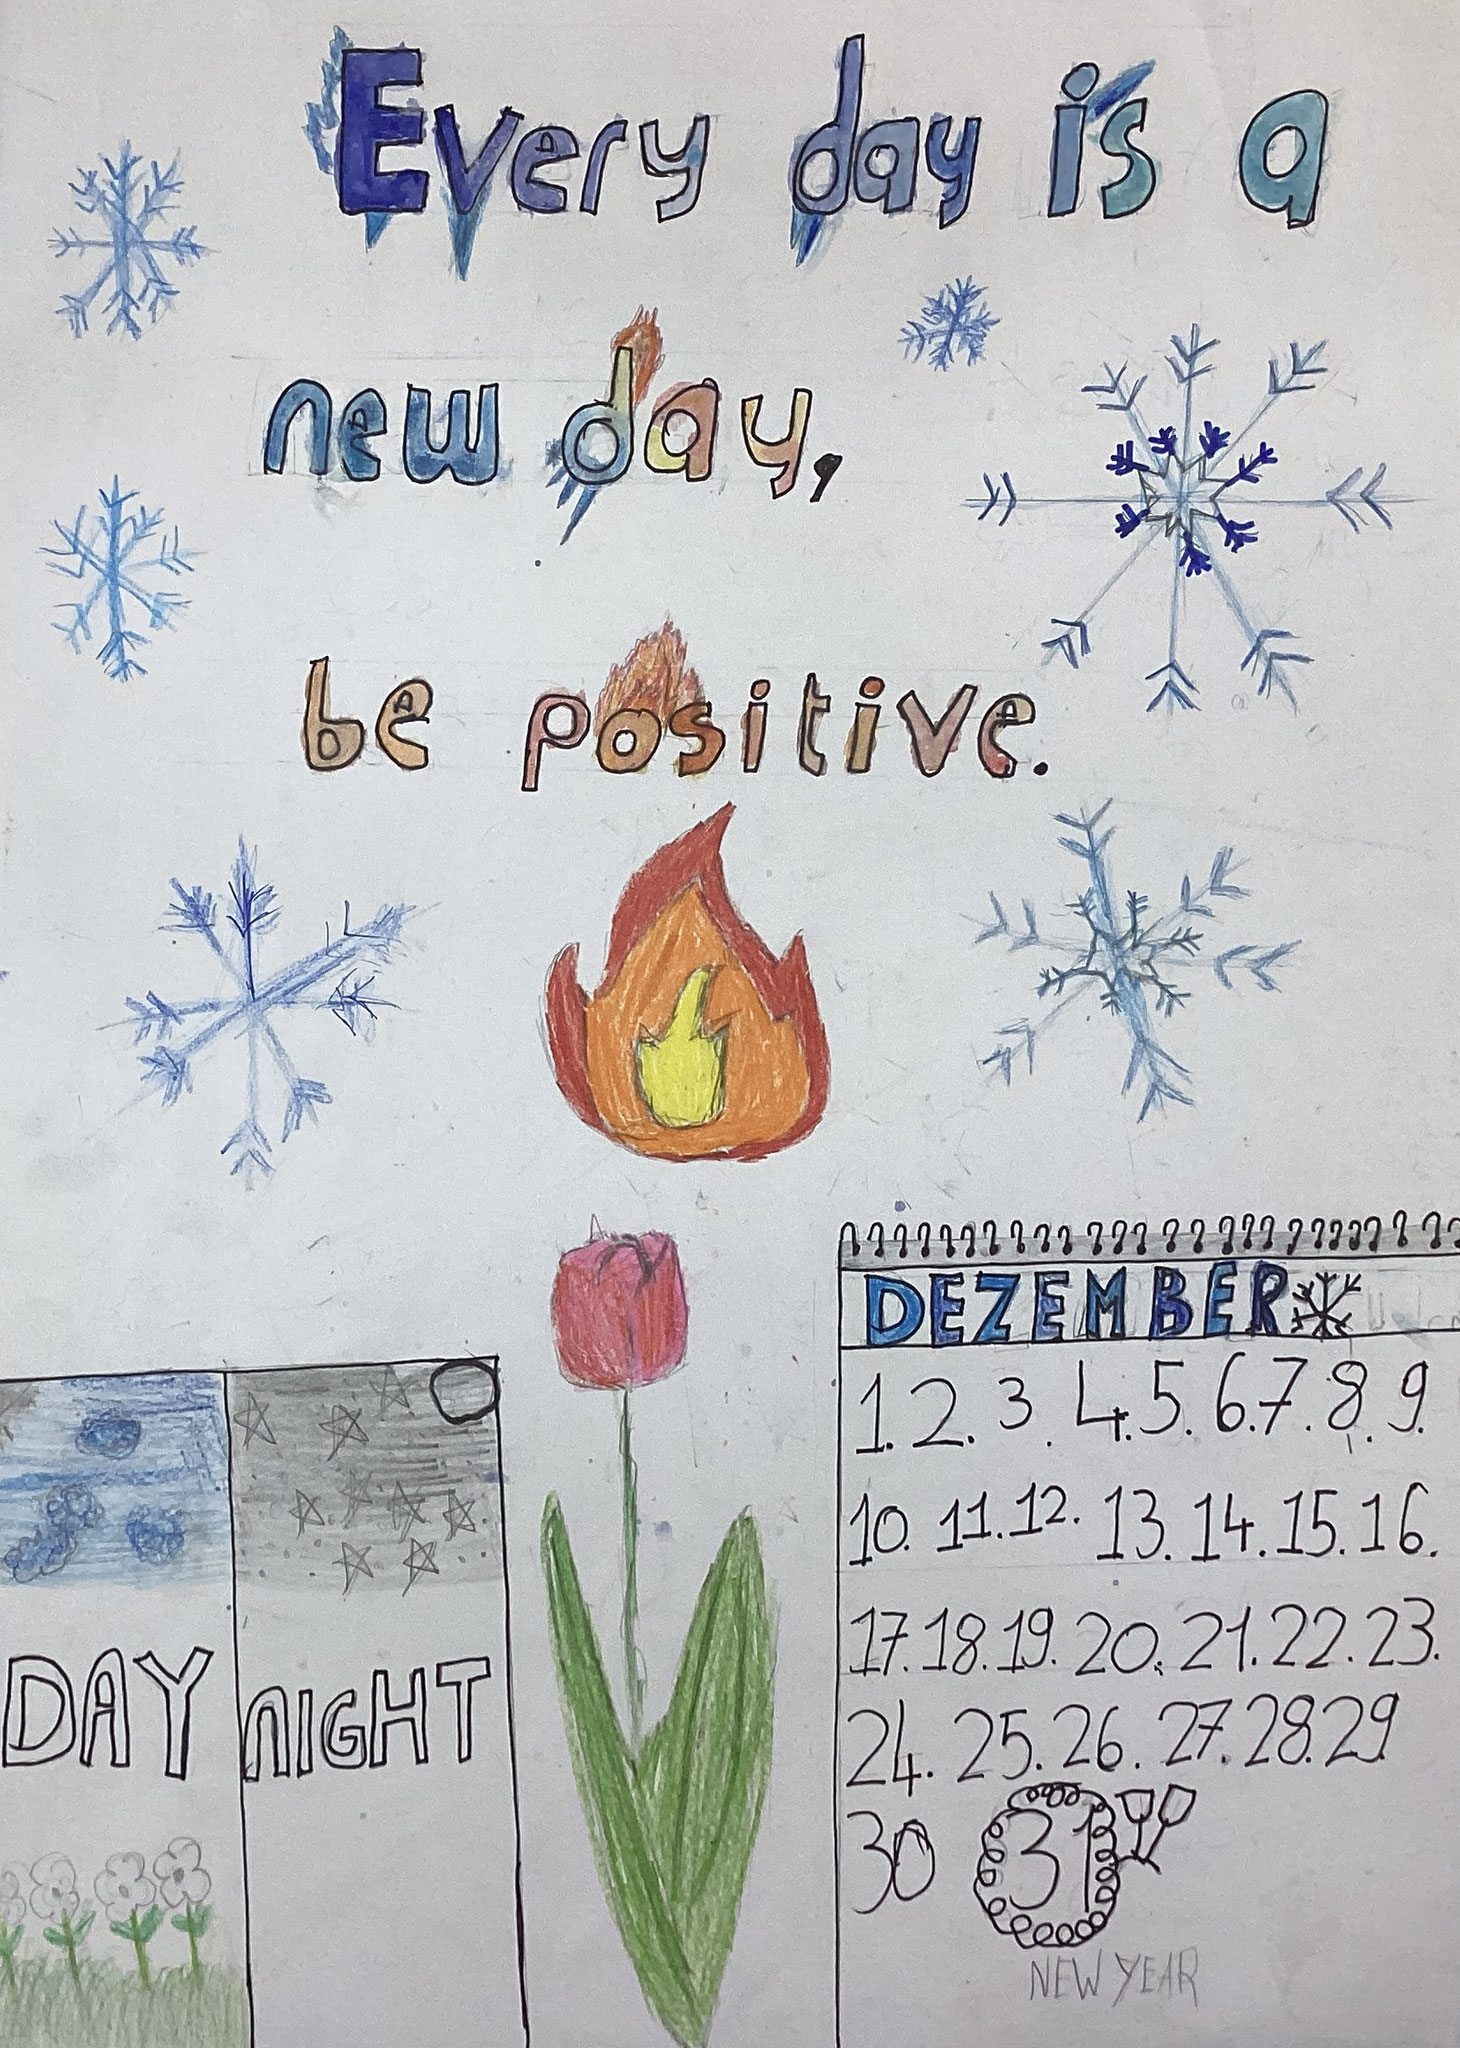 Every day is a
new day,
be positive.
DEZEMBER
1. 2. 3. 4. 5. 6. 7. 8. 9.
10. 11. 12. 13. 14. 15. 16.
17. 18. 19. 20. 21. 22. 23.
24. 25. 26. 27. 28. 29
30 31
NEW YEAR
DAY
NIGHT